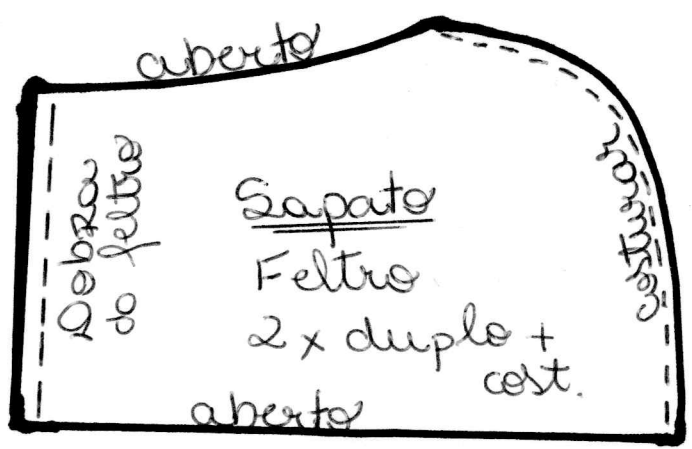 aberto
Dobra
do feltro
Sapato
Feltro
2 x duplo +
cost.
costurar
aberto